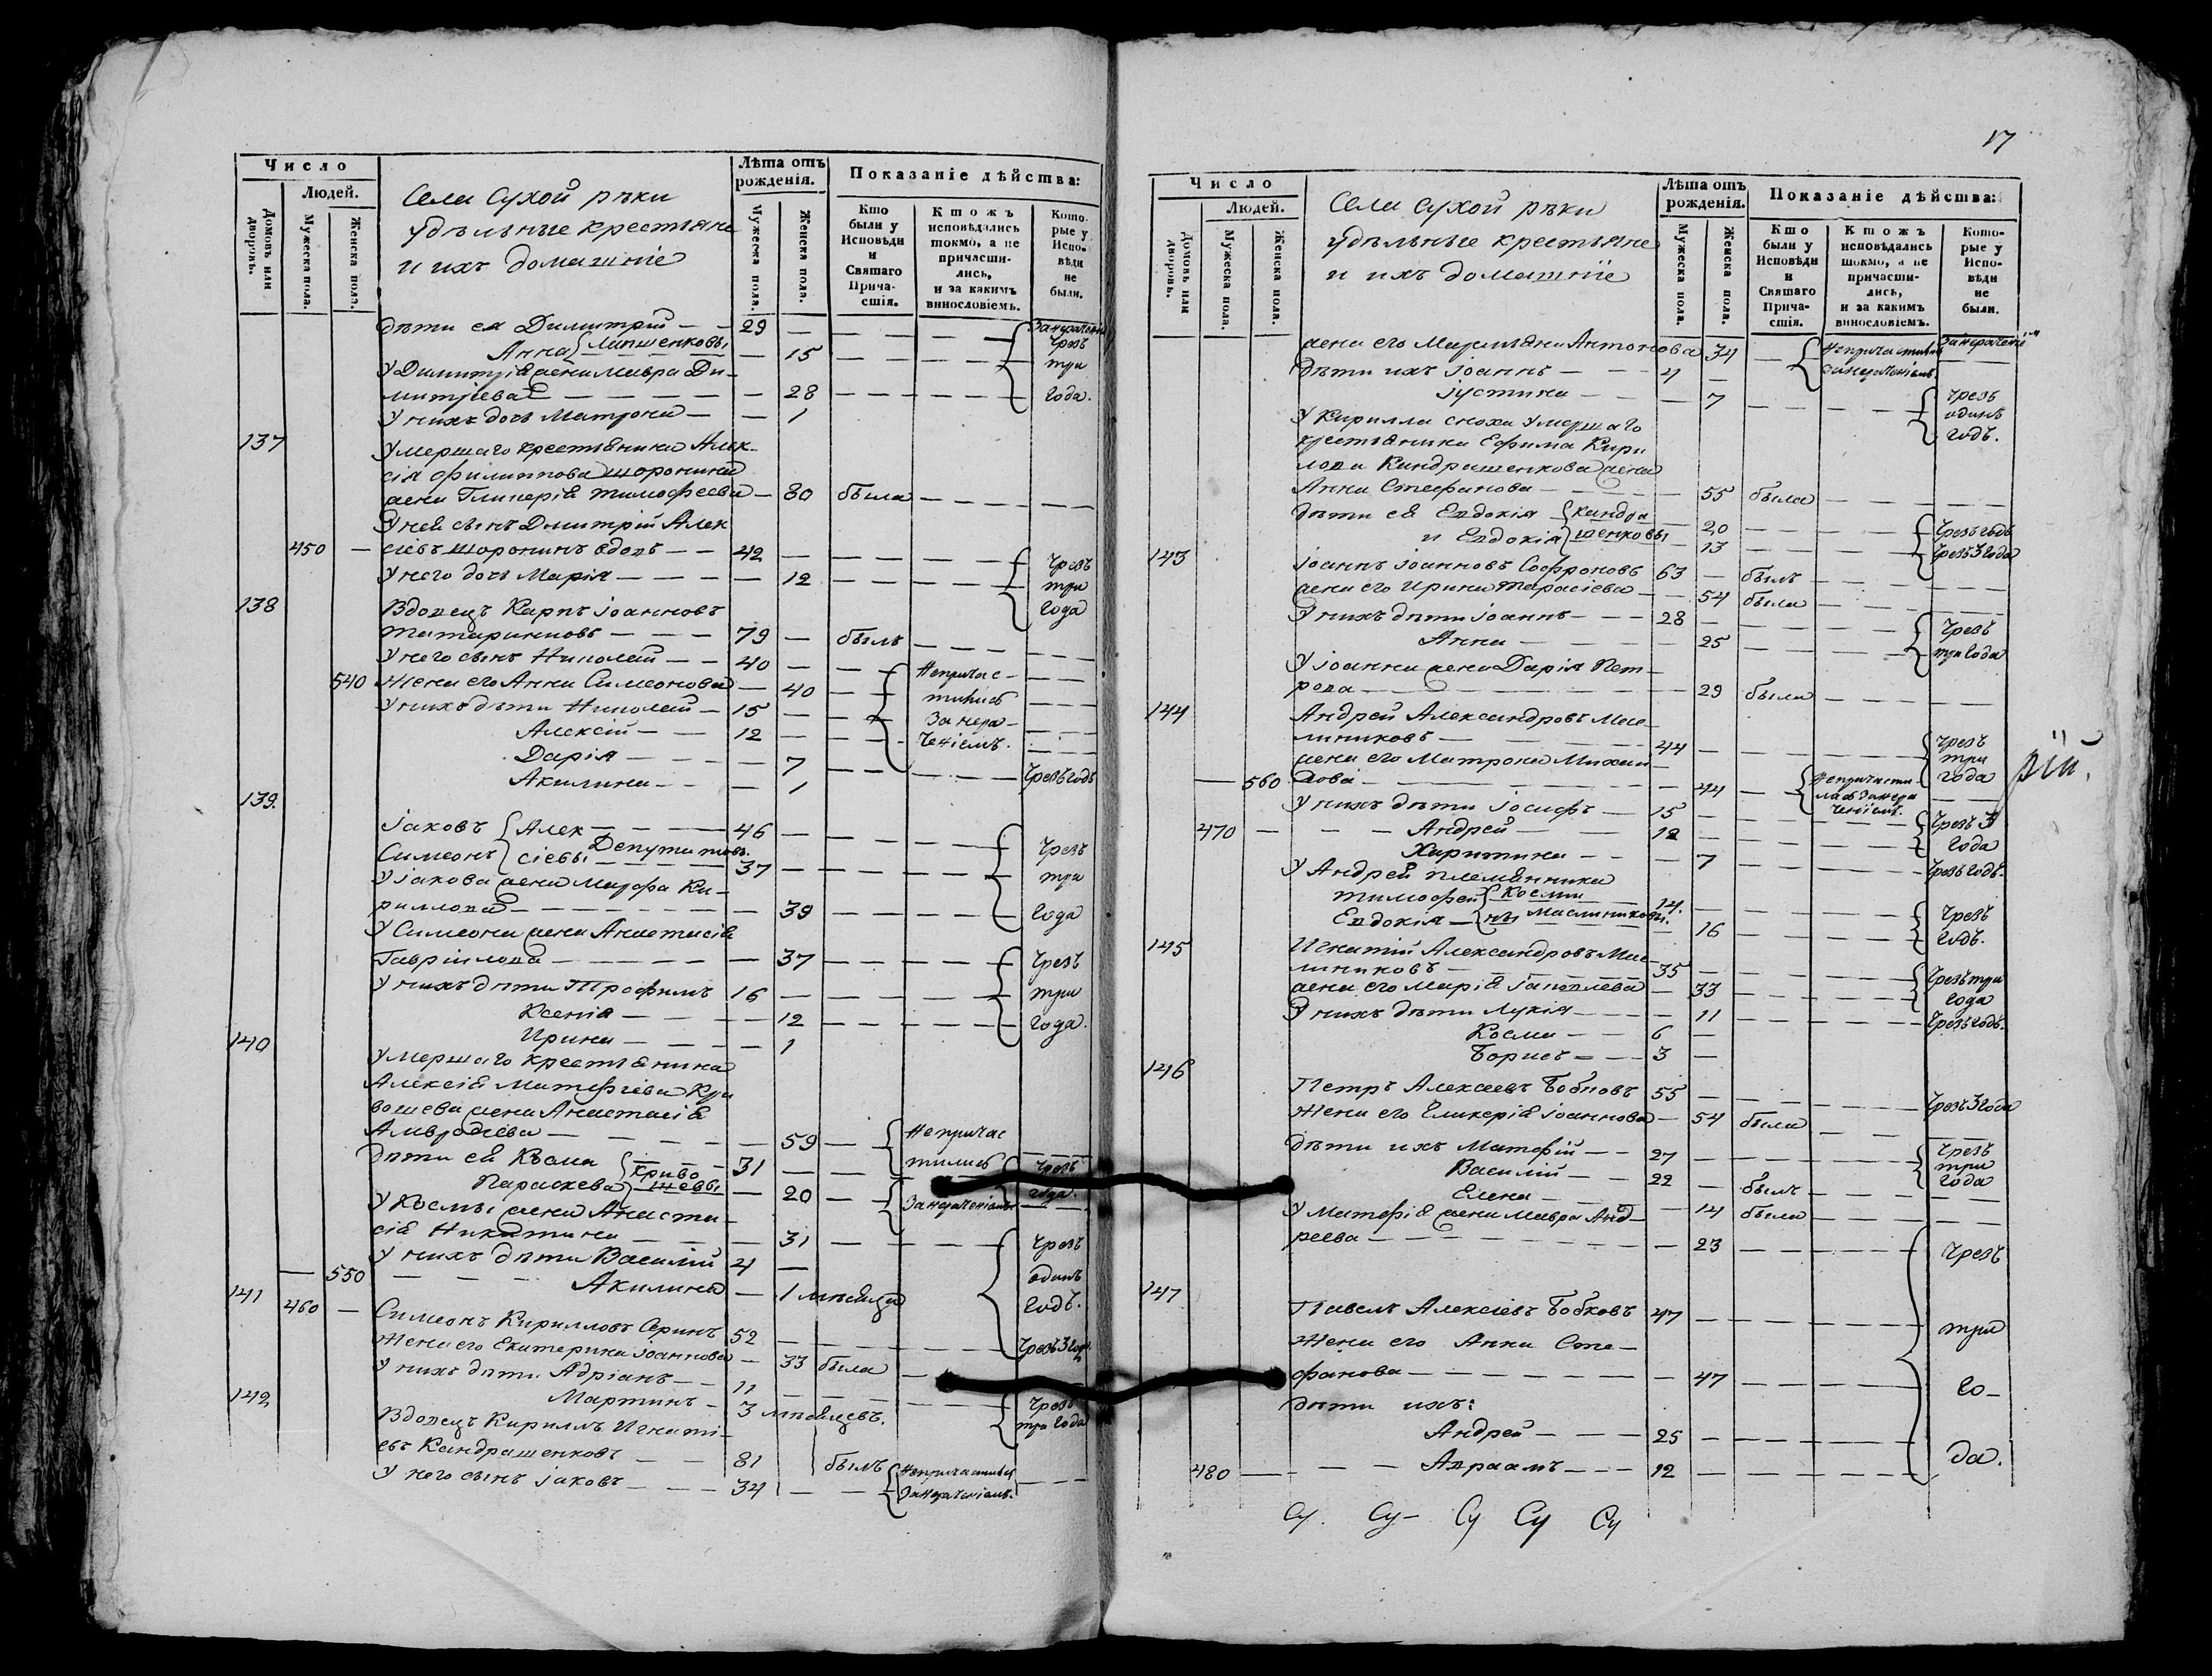 Число
Людей.
Домовъ или дворовъ.
Мужеска пола.
Женска пола.
Села Сухой рѣки
удѣльные крестьяне
и ихъ домашніе
Лѣта отъ рожденія.
Мужеска пола.
Женска пола.
Показаніе дѣйства:
Кто были у Исповѣди и Святаго Прича-стія.
Ктожъ исповѣдались токмо, а не причасти-лись, и за какимъ винословіемъ.
Кото-рые у Испо-вѣди не были.
дѣти ея Димитрій — — 29 —
Анна — 15 Чрезъ
У Димитрія жена Мавра Ди- три
митріева — — 28 года.
У нихъ дочь Матрона — — 1
137 Умершаго крестьянина Алек-
сія Филиппова Шоронина
жена Гликерія Тимофеева — 80 была
У ней сынъ Димитрій Алек
450 — сіевъ Шоронинъ вдовъ — — 42 — Чрезъ
У него дочь Марія — — — 12 три
138 Вдовецъ Карпъ Іоанновъ года
Татариновъ — — — 79 — былъ
У него сынъ Николай — — 40 — Непричас-
540 Жена его Анна Симеонова — 40 тились
У нихъ дѣти Николай — 15 — За нера-
Алексій — — 12 — ченіемъ.
Дарія — — — 7
Акилина — — — 1 Чрезъ годъ
139. Іаковъ { Алек — — 46 —
Симеонъ } сіевы Депутатовы. 37 — Чрезъ
У Іакова жена Марфа Ки- три
риллова — — 39 года
У Симеона жена Анастасія
Гавріилова — — 37 Чрезъ
У нихъ дѣти Трофимъ 16 — три
Ксенія — — 12 года.
Ирина — — 1
140 Умершаго крестьянина
Алексія Матфіева Кри
вошева жена Анастасія
— 59 Непричас
дѣти ея Косма { Криво 31 — тились Чрезъ
Параскева } шевы — 20 За нераченіемъ года.
У Космы жена Анаста-
сія Никитина — — 31 Чрезъ
У нихъ дѣти Василій 4 — одинъ
— 550 — — — Акилина — 1 мѣсяца годъ.
141 460 — Симеонъ Кирилловъ Серинъ 52 — Чрезъ 3 года.
Жена его Екатерина Іоаннова — 33 была
У нихъ дѣти Адріанъ — — 11 Чрезъ
Мартинъ — 3 мѣсяцевъ. три года
142 Вдовецъ Кириллъ Игнаті-
евъ Кандрашенковъ — — 81 былъ
У него сынъ Іаковъ — — — 34 Непричастился За нераченіемъ.
17
Число
Людей.
Домовъ или дворовъ.
Мужеска пола.
Женска пола.
Села Сухой рѣки
удѣльные крестьяне
и ихъ домашніе
Лѣта отъ рожденія.
Мужеска пола.
Женска пола.
Показаніе дѣйства:
Кто были у Исповѣди и Святаго Прича-стія.
Ктожъ исповѣдались токмо, а не причасти-лись, и за какимъ винословіемъ.
Кото-рые у Испо-вѣди не были.
жена его Антонова 34 за нераченіемъ
дѣти ихъ Іоаннъ — — — 4 —
Іустина — — — 7 Чрезъ
У Кирилла сноха умершаго одинъ
крестьянина Ефима Кири годъ.
лова Кандрашенкова жена
Анна Стефанова — — 55 была
дѣти ея Евдокія { Кандра — 20 Чрезъ годъ
и Евдокія } шенковы — 13 Чрезъ 3 года
143 Іоаннъ Іоанновъ Софроновъ 63 — былъ
жена его Ирина Тарасіева — 54 была
У нихъ дѣти Іоаннъ — — — 28 — Чрезъ
Анна — — 25 три года
У Іоанна жена Дарія Пет-
рова — — 29 была
144 Андрей Александровъ Мас-
линиковъ — — 44 — Чрезъ
жена его Матрона Михаи три
— 560 лова — — 44 Непричасти лась За нера ченіемъ. года
У нихъ дѣти Іосифъ — 15 — Чрезъ 3
470 — — — Андрей — — 12 — года
Харитина — — — 7 Чрезъ годъ.
У Андрея племянники
Тимофей { Косми — 14. Чрезъ
Евдокія — } ны Маслиниковы. 16 годъ.
145 Игнатій Александровъ Мас-
линиковъ — — 35 — Чрезъ три
жена его Марія Іаковлева — 33 года
У нихъ дѣти Лукія — — — 11 Чрезъ годъ.
Косма — — 6 —
Борисъ — — — 3 —
146 Петръ Алексеевъ Бобковъ 55 — Чрезъ 3 года
Жена его Гликерія Іоаннова — 54 была
дѣти ихъ Матфій — — 27 — Чрезъ
Василій — — 22 — былъ три
Елена — — 14 была года
У Матфія жена Мавра Анд-
реева — — 23 Чрезъ
147 Павелъ Алексіевъ Бобковъ 47 — три
Жена его Анна Сте-
фанова — — 47 го-
дѣти ихъ:
Андрей — — — 25 —
480 — — — Авраамъ — — — 12 — да.
рій.
Су. Су- Су Су Су